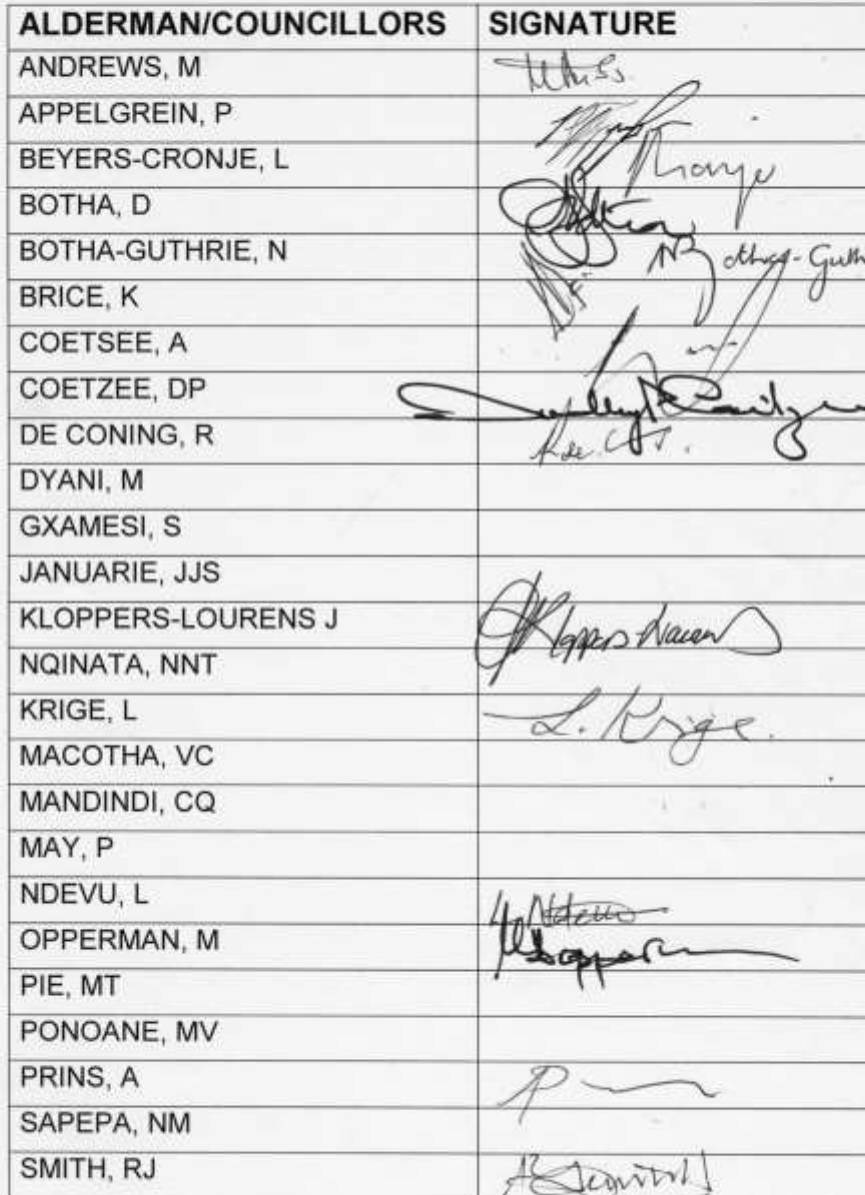 ALDERMAN/COUNCILLORS SIGNATURE
ANDREWS, M
APPELGREIN, P
BEYERS-CRONJE, L
BOTHA, D
BOTHA-GUTHRIE, N
BRICE, K
COETSEE, A
COETZEE, DP
DE CONING, R
DYANI, M
GXAMESI, S
JANUARIE, JJS
KLOPPERS-LOURENS J
NQINATA, NNT
KRIGE, L L. Krige.
MACOTHA, VC
MANDINDI, CQ
MAY, P
NDEVU, L
OPPERMAN, M
PIE, MT
PONOANE, MV
PRINS, A
SAPEPA, NM
SMITH, RJ